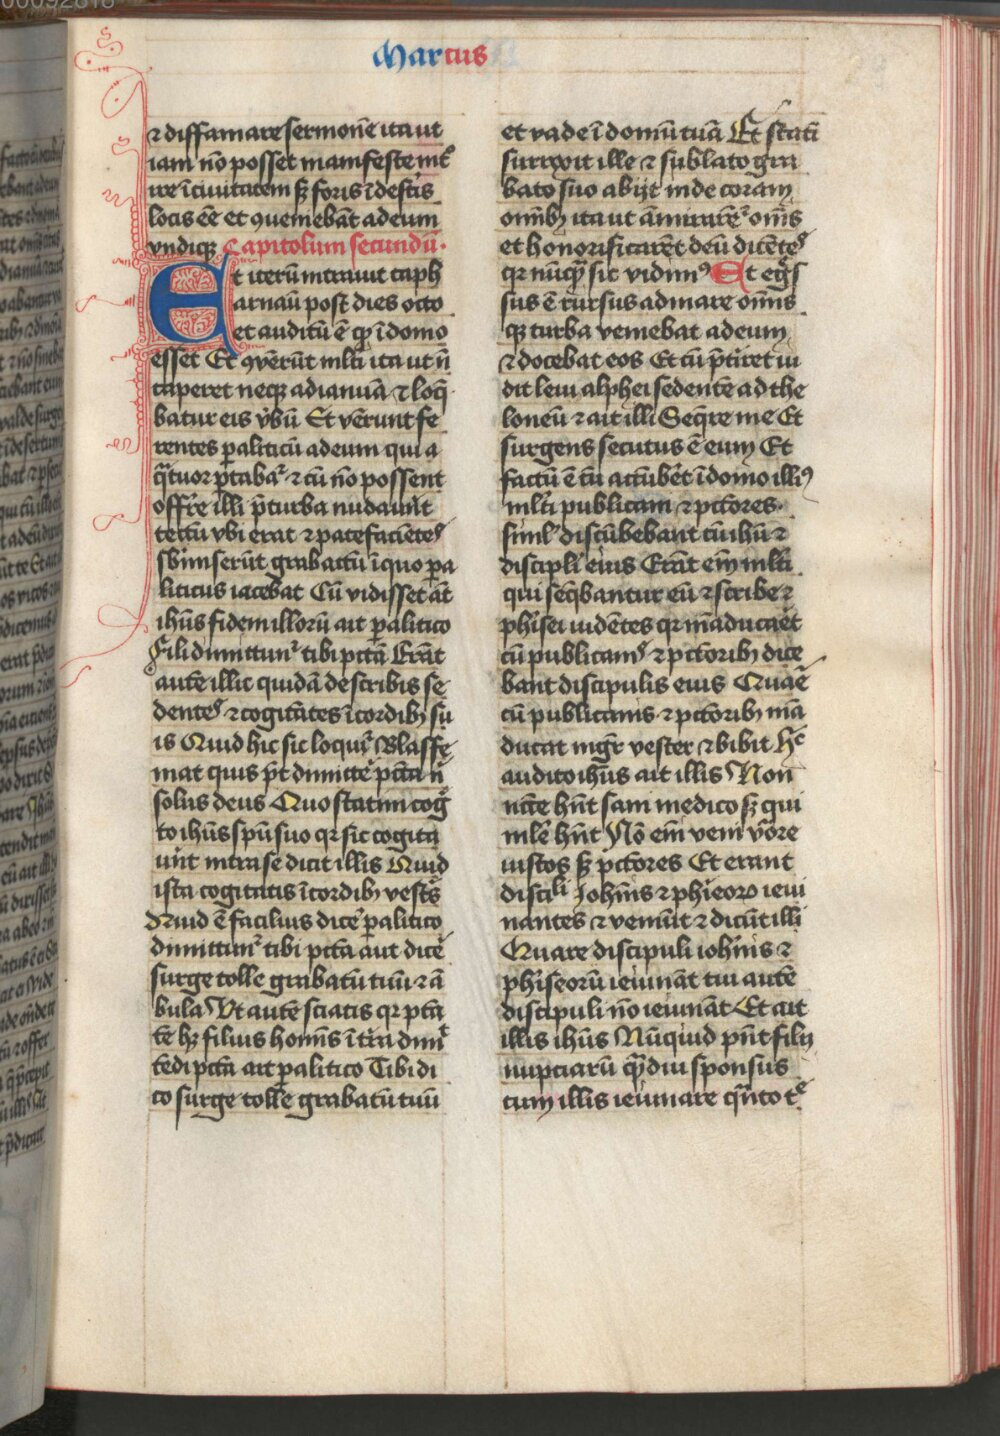 Marcus
29
⁊ diffamare sermonē ita ut
iam nō posset manifeste int͛
ire ī ciuitatem sꝫ foris ī dest͛is
locis eē et ꝯueniebāt ad eum
vndiqꝫ Capitolum secundū·
Et iterū intrauit caph
arnaū post dies octo
et auditū ē ꝙ ī domo
esset Et ꝯuēr̄ūt ml̄ti ita ut n̄
caperet neqꝫ ad ianuā ⁊ loq̄
batur eis v̄bū Et vēr̄unt fe
rentes ꝑaliticū ad eum qui a
q̄tuor p̄taba͛ ⁊ cū nō possent
offr̄e illi p̄ turba nudauūt
tectū vbi erat ⁊ patefaciētes
sb̄miserūt grabattū ī quo pa
liticus iacebat Cū vidisset āt
ihūs fidem illorū ait ꝑalitico
Fili dimittunt͛ tibi pctā Erāt
autē illic quidā de scribis se
dentes ⁊ cogitātes ī cordibꝫ su
is Quid hic sic loquit͛ Blasfe
mat quis pt̄ dimitte͛ pctā n̄
solus deus Quo statim coḡ
to ihūs spū suo qr sic cogita
ūnt intra se dicit illis Quid
ista cogitatis ī cordibꝫ vest͛s
Quid ē facilius dice͛ ꝑalitico
dimittunt͛ tibi pctā aut dice͛
surge tolle grabatū tuū ⁊ ā
bula Vt autē sciatis qr pt̄a
tē hꝫ filius homīs ī t͛ra dimi͛
tēdi pctā ait ꝑalitico Tibi di
co surge tolle grabatū tuū
et vade ī domū tuā Et statī
surrexit ille ⁊ sublato gra
bato suo abijt inde coram
omībꝫ ita ut āmirarēt͛ om̄s
et honorificarēt deū dicētes
qr nūq̄ sic vidimꝰ Et eg͛s
sus ē rursus ad mare om̄is
qꝫ turba veniebat ad eum
⁊ docebat eos Et cū p̄tiret vi
dit leui alphei sedentē ad the
loneū ⁊ ait illi Seq̄re me Et
surgens secutus ē eum Et
factū ē cū accūbēt ī domo illiꝰ
ml̄ti publicani ⁊ pctores·
siml̄ discūbebant cū ihū ⁊
discipli eius Erāt em̄ ml̄ti
qui seq̄bantur eū ⁊ scribe ⁊
ph̄isei vidētes qr māducaēt
cū publicanis ⁊ pctoribꝫ dice
bant discipulis eius Quaē
cū publicanis ⁊ pctoribꝫ mā
ducat mgr̄ vester ⁊ bibit Hͨ
audito ihūs ait illis Non
ncc̄e hn̄t sani medico sꝫ qui
ml̄e hn̄t Nō em̄ veni vōre
iustos sꝫ pctores Et erant
disciˡⁱ Johīnis ⁊ phīeorꝝ ieiu
nantes ⁊ veniūt ⁊ dicūt illi
Quare discipuli iohīnis ⁊
ph̄iseorū ieiunāt tui autē
discipuli nō ieiunāt Et ait
illis ihūs Nūquid pn̄t filij
nuptiarū q̄diu sponsus
cum illis ieiunare q̄nto tͤ